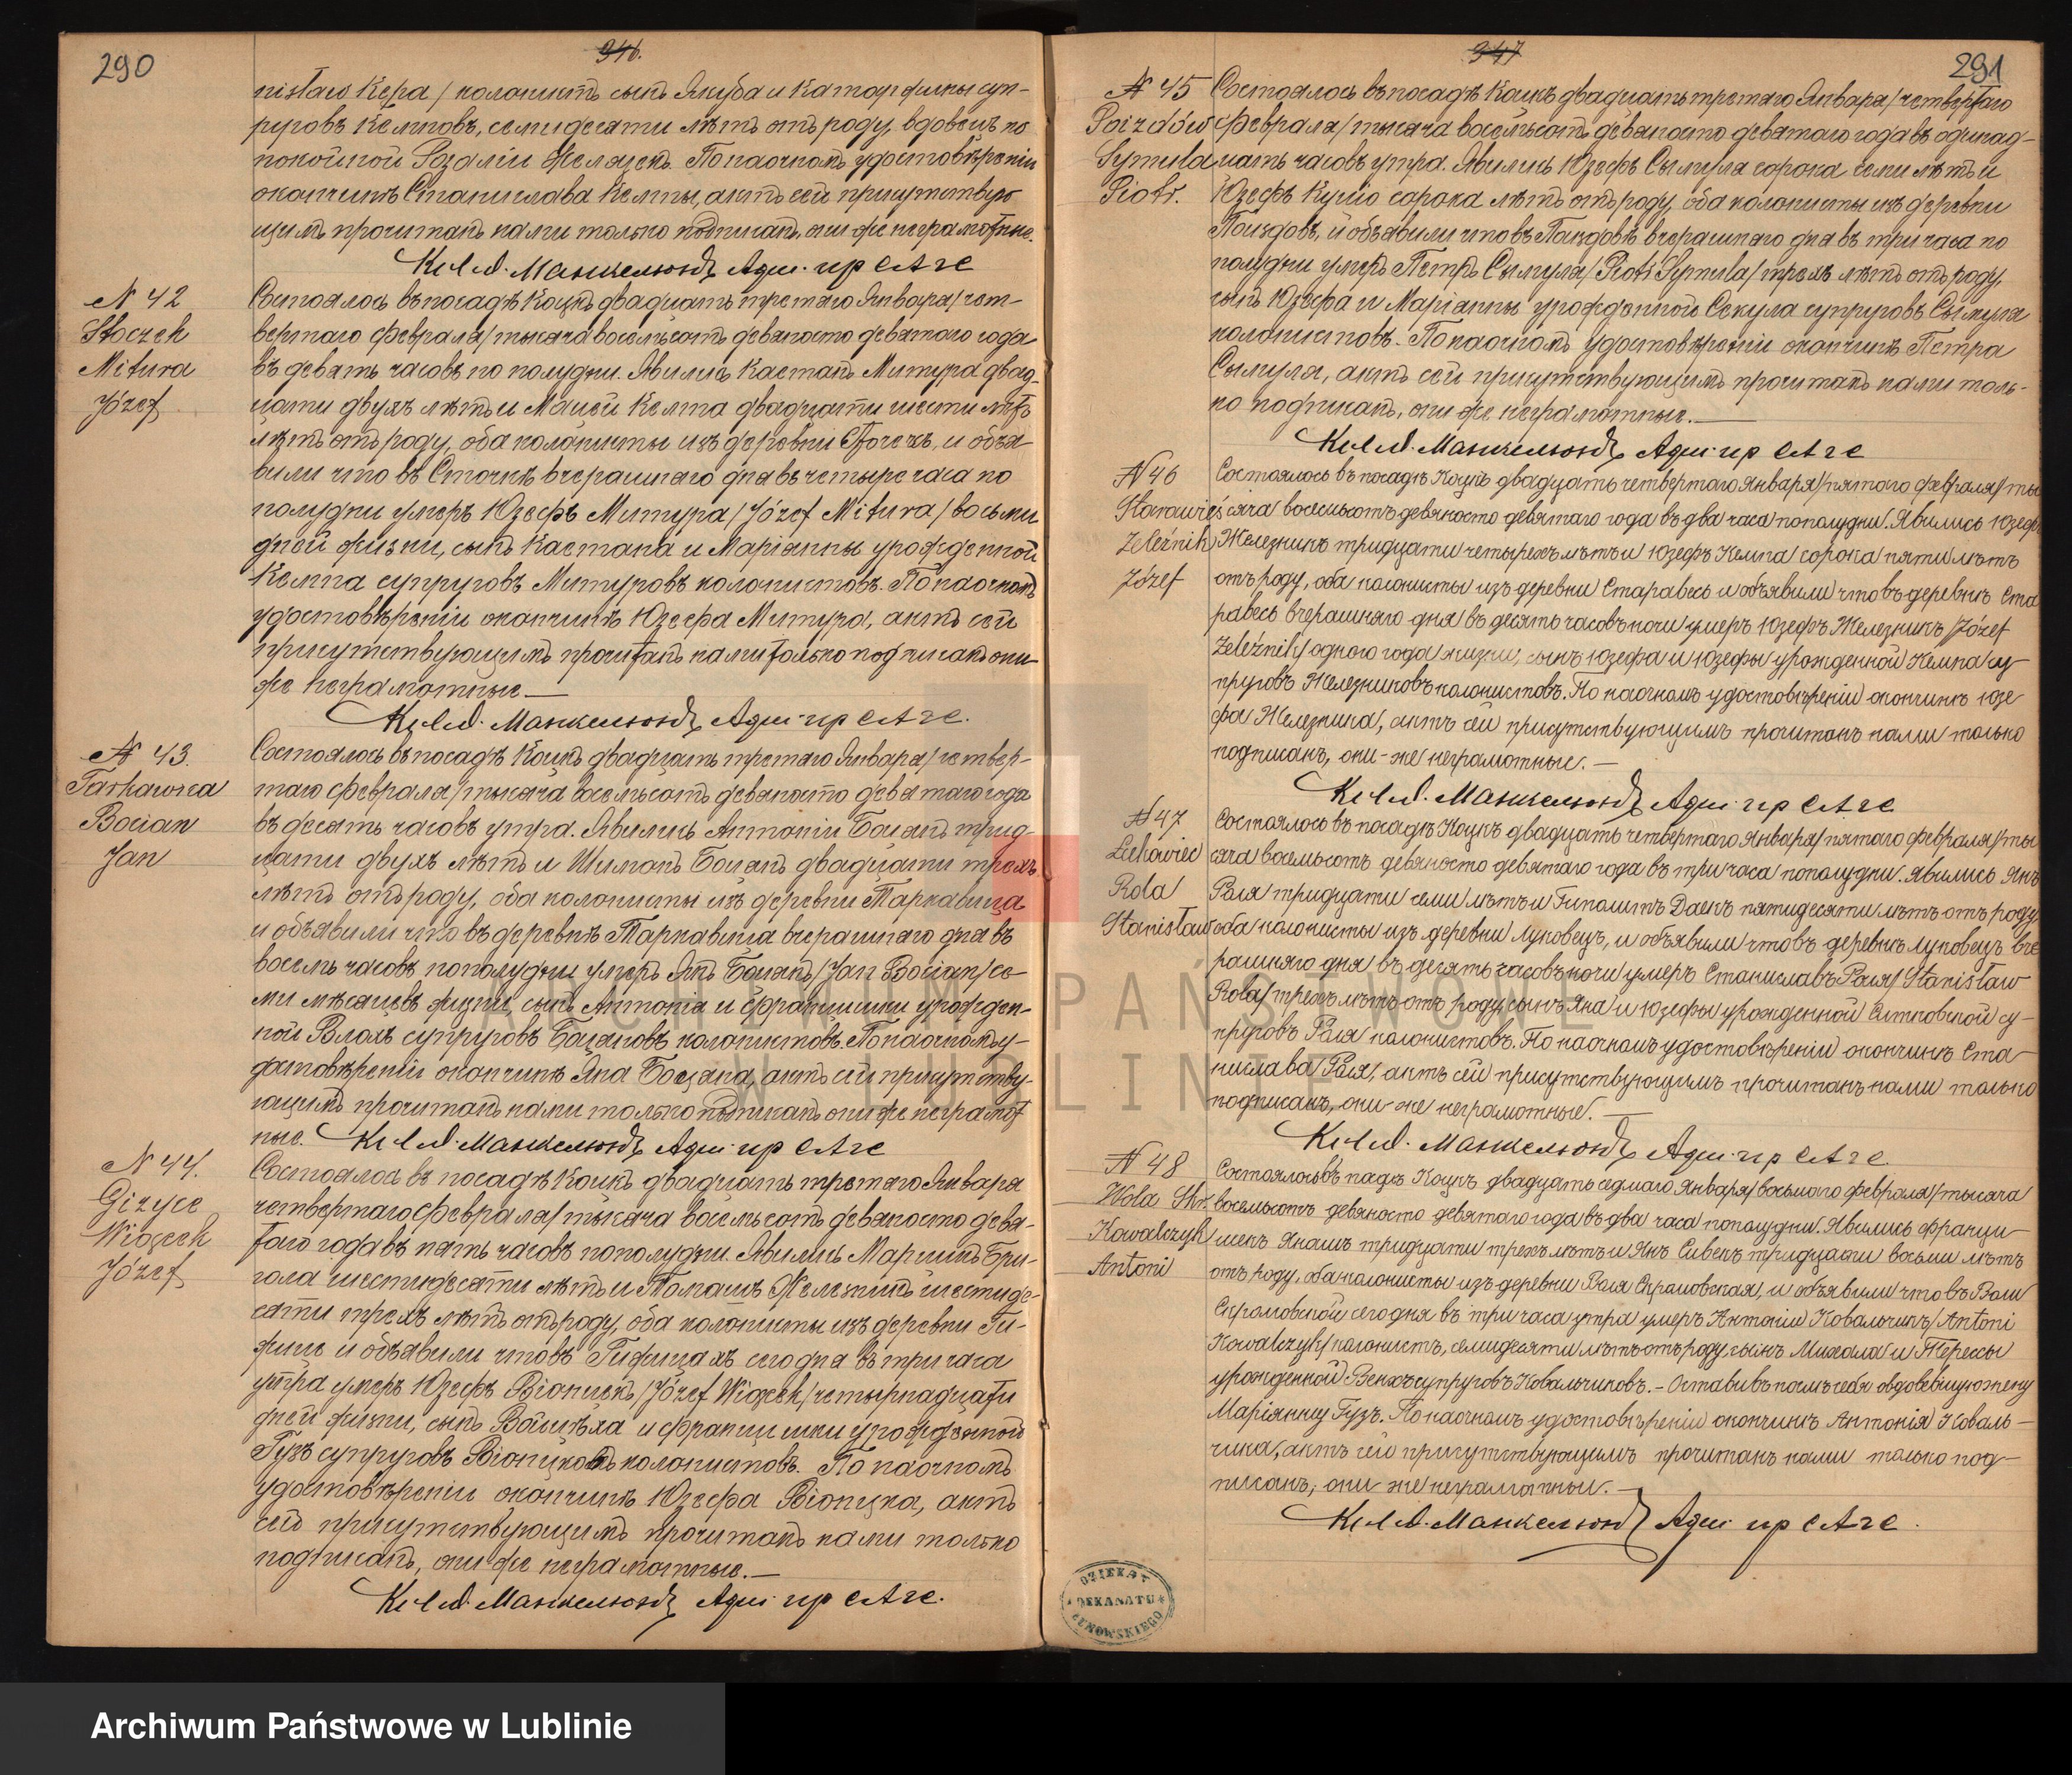 290
946.
nisław Kępa / колонистъ сынъ Якуба и Катаржины суп-
руговъ Кемповъ, семидесяти лѣтъ отъ роду, вдовецъ по
покойной Розаліи Желязек. По наочномъ удостовѣреніи
окончинѣ Станислава Кемпы, актъ сей присутствую
щимъ прочитанъ нами только подписанъ, они же неграмотные.
Кс. Манкелюнъ Адм. пр
N 42
Stoczek
Mitura
Józef
Состоялось въ посадѣ Коцкѣ двадцать третьяго Января / чет-
вертаго февраля / тысяча восемьсотъ девяносто девятаго года
въ девять часовъ по полудни. Явились Каетанъ Митура двад-
цати двухъ лѣтъ и Мацей Кемпа двадцати шести лѣтъ
лѣтъ отъ роду, оба колонисты изъ деревни Сточекъ, и объя-
вили что въ Сточкѣ вчерашняго дня въ четыре часа по
полудни умеръ Юзефъ Митура / Józef Mitura / восьми
дней жизни, сынъ Каетана и Маріанны урожденной
Кемпа супруговъ Митуровъ колонистовъ. По наочномъ
удостовѣреніи окончинѣ Юзефа Митура, актъ сей
присутствующимъ прочитанъ нами только подписанъ они
же неграмотные —
Кс. Манкелюнъ Адм. пр
N 43.
Tarkawica
Bocian
Jan
Состоялось въ посадѣ Коцкѣ двадцать третьяго Января / четвер-
таго февраля / тысяча восемьсотъ девяносто девятаго года
въ десять часовъ утра. Явились Антоній Боцянъ трид-
цати двухъ лѣтъ и Шимонъ Боцянъ двадцати трехъ
лѣтъ отъ роду, оба колонисты изъ деревни Таркавица
и объявили что въ деревнѣ Таркавица вчерашняго дня въ
восемь часовъ пополудни умеръ Янъ Боцянъ / Jan Bocian / се-
ми мѣсяцевъ жизни, сынъ Антонія и Францишки урожден-
ной Влохъ супруговъ Боцяновъ колонистовъ. По наочному
достовѣреніи окончинѣ Яна Боцяна, актъ сей присутству-
ющимъ прочитанъ нами только подписанъ они же неграмот
ные. Кс. Манкелюнъ Адм. пр
N 44.
Giżyce
Wiącek
Józef
Состоялось въ посадѣ Коцкѣ двадцать третьяго Января
четвертаго февраля / тысяча восемьсотъ девяносто девя-
таго года въ пять часовъ пополудни. Явились Марцинъ Гри-
гола шестидесяти лѣтъ и Томашъ Желязникъ шестиде-
сяти трехъ лѣтъ отъ роду, оба колонисты изъ деревни Ги-
жице и объявили что въ Гижицахъ сегодня въ три часа
утра умеръ Юзефъ Віонцекъ / Józef Wiącek / четырнадцати
дней жизни, сынъ Войцѣха и Францишки урожденной
Гузъ супруговъ Віонцковъ колонистовъ. По наочномъ
удостовѣреніи окончинѣ Юзефа Віонцка, актъ
сей присутствующимъ прочитанъ нами только
подписанъ, они же неграмотные. —
Кс. Манкелюнъ Адм. пр
947
291
N 45
Poizdów
Symula
Piotr.
Состоялось въ посадѣ Коцкѣ двадцать третьяго Января / четвертаго
февраля / тысяча восемьсотъ девяносто девятаго года въ одинад-
цать часовъ утра. Явились Юзефъ Сымула сорока семи лѣтъ и
Юзефъ Куцйо сорока лѣтъ отъ роду, оба колонисты изъ деревни
Поиздовъ, и объявили что въ Поиздовѣ вчерашняго дня въ три часа по
полудни умеръ Петръ Сымула / Piotr Symula / трехъ лѣтъ отъ роду,
сынъ Юзефа и Маріанны урожденной Секула супруговъ Сымула
колонистовъ. По наочномъ удостовѣреніи окончинѣ Петра
Сымуля, актъ сей присутствующимъ прочитанъ нами толь-
ко подписанъ, они же неграмотные. —
Кс. Манкелюнъ Адм. пр
N 46
Starawieś
Zeleźnik
Józef
Состоялось въ посадѣ Коцкѣ двадцать четвертаго января / пятаго февраля / ты
сяча восемьсотъ девяносто девятаго года въ два часа пополудни. Явились Юзефъ
Железникъ тридцати четырехъ лѣтъ и Юзефъ Кемпа сорока пяти лѣтъ
отъ роду, оба колонисты изъ деревни Старавесь и объявили что въ деревнѣ Ста
равесь вчерашняго дня въ десять часовъ ночи умеръ Юзефъ Железникъ / Józef
Zeleźnik / одного года жизни, сынъ Юзефа и Юзефы урожденной Кемпа су-
пруговъ Железниковъ колонистовъ. По наочномъ удостовѣреніи окончинѣ Юзе
фа Железника, актъ сей присутствующимъ прочитанъ нами только
подписанъ, они-же неграмотные. —
Кс. Манкелюнъ Адм. пр
N 47
Łukowiec
Rola
Stanisław
Состоялось въ посадѣ Коцкѣ двадцать четвертаго января / пятаго февраля / ты
сяча восемьсотъ девяносто девятаго года въ три часа пополудни. Явились Янъ
Роля тридцати семи лѣтъ и Гиполитъ Даекъ пятидесяти лѣтъ отъ роду
оба колонисты изъ деревни Луковецъ, и объявили что въ деревнѣ Луковецъ вче
рашняго дня въ десять часовъ ночи умеръ Станиславъ Роля / Stanisław
Rola / трехъ лѣтъ отъ роду, сынъ Яна и Юзефы урожденной Ситковской су-
пруговъ Роля колонистовъ. По наочномъ удостовѣреніи окончинѣ Ста
нислава Роля, актъ сей присутствующимъ прочитанъ нами только
подписанъ, они-же неграмотные. —
Кс. Манкелюнъ Адм. пр
N 48
Wola Skr.
Kowalczyk
Antoni
Состоялось въ падѣ Коцкѣ двадцать седмаго Января / восьмого февраля / тысяча
восемьсотъ девяносто девятаго года въ два часа пополудни. Явились Францы-
шекъ Янашъ тридцати трехъ лѣтъ и Янъ Сивекъ тридцати восьми лѣтъ
отъ роду, оба колонисты изъ деревни Воля Скромовская, и объявили что въ Воли
Скромовской сегодня въ три часа утра умеръ Антоній Ковальчикъ / Antoni
Kowalczyk / колонистъ, семидесяти лѣтъ отъ роду, сынъ Михала и Терессы
урожденной Венхъ супруговъ Ковальчиковъ. — Оставивъ послѣ себя овдовѣвшую жену
Маріянну Гузъ. По наочномъ удостовѣреніи окончинѣ Антонія Коваль-
чика, актъ сей присутствующимъ прочитанъ нами только под-
писанъ, они же неграмотные. —
Кс. Манкелюнъ Адм. пр
DZIEKAN
DEKANATU
ŁUKOWSKIEGO
ARCHIWUM PAŃSTWOWE
W LUBLINIE
Archiwum Państwowe w Lublinie